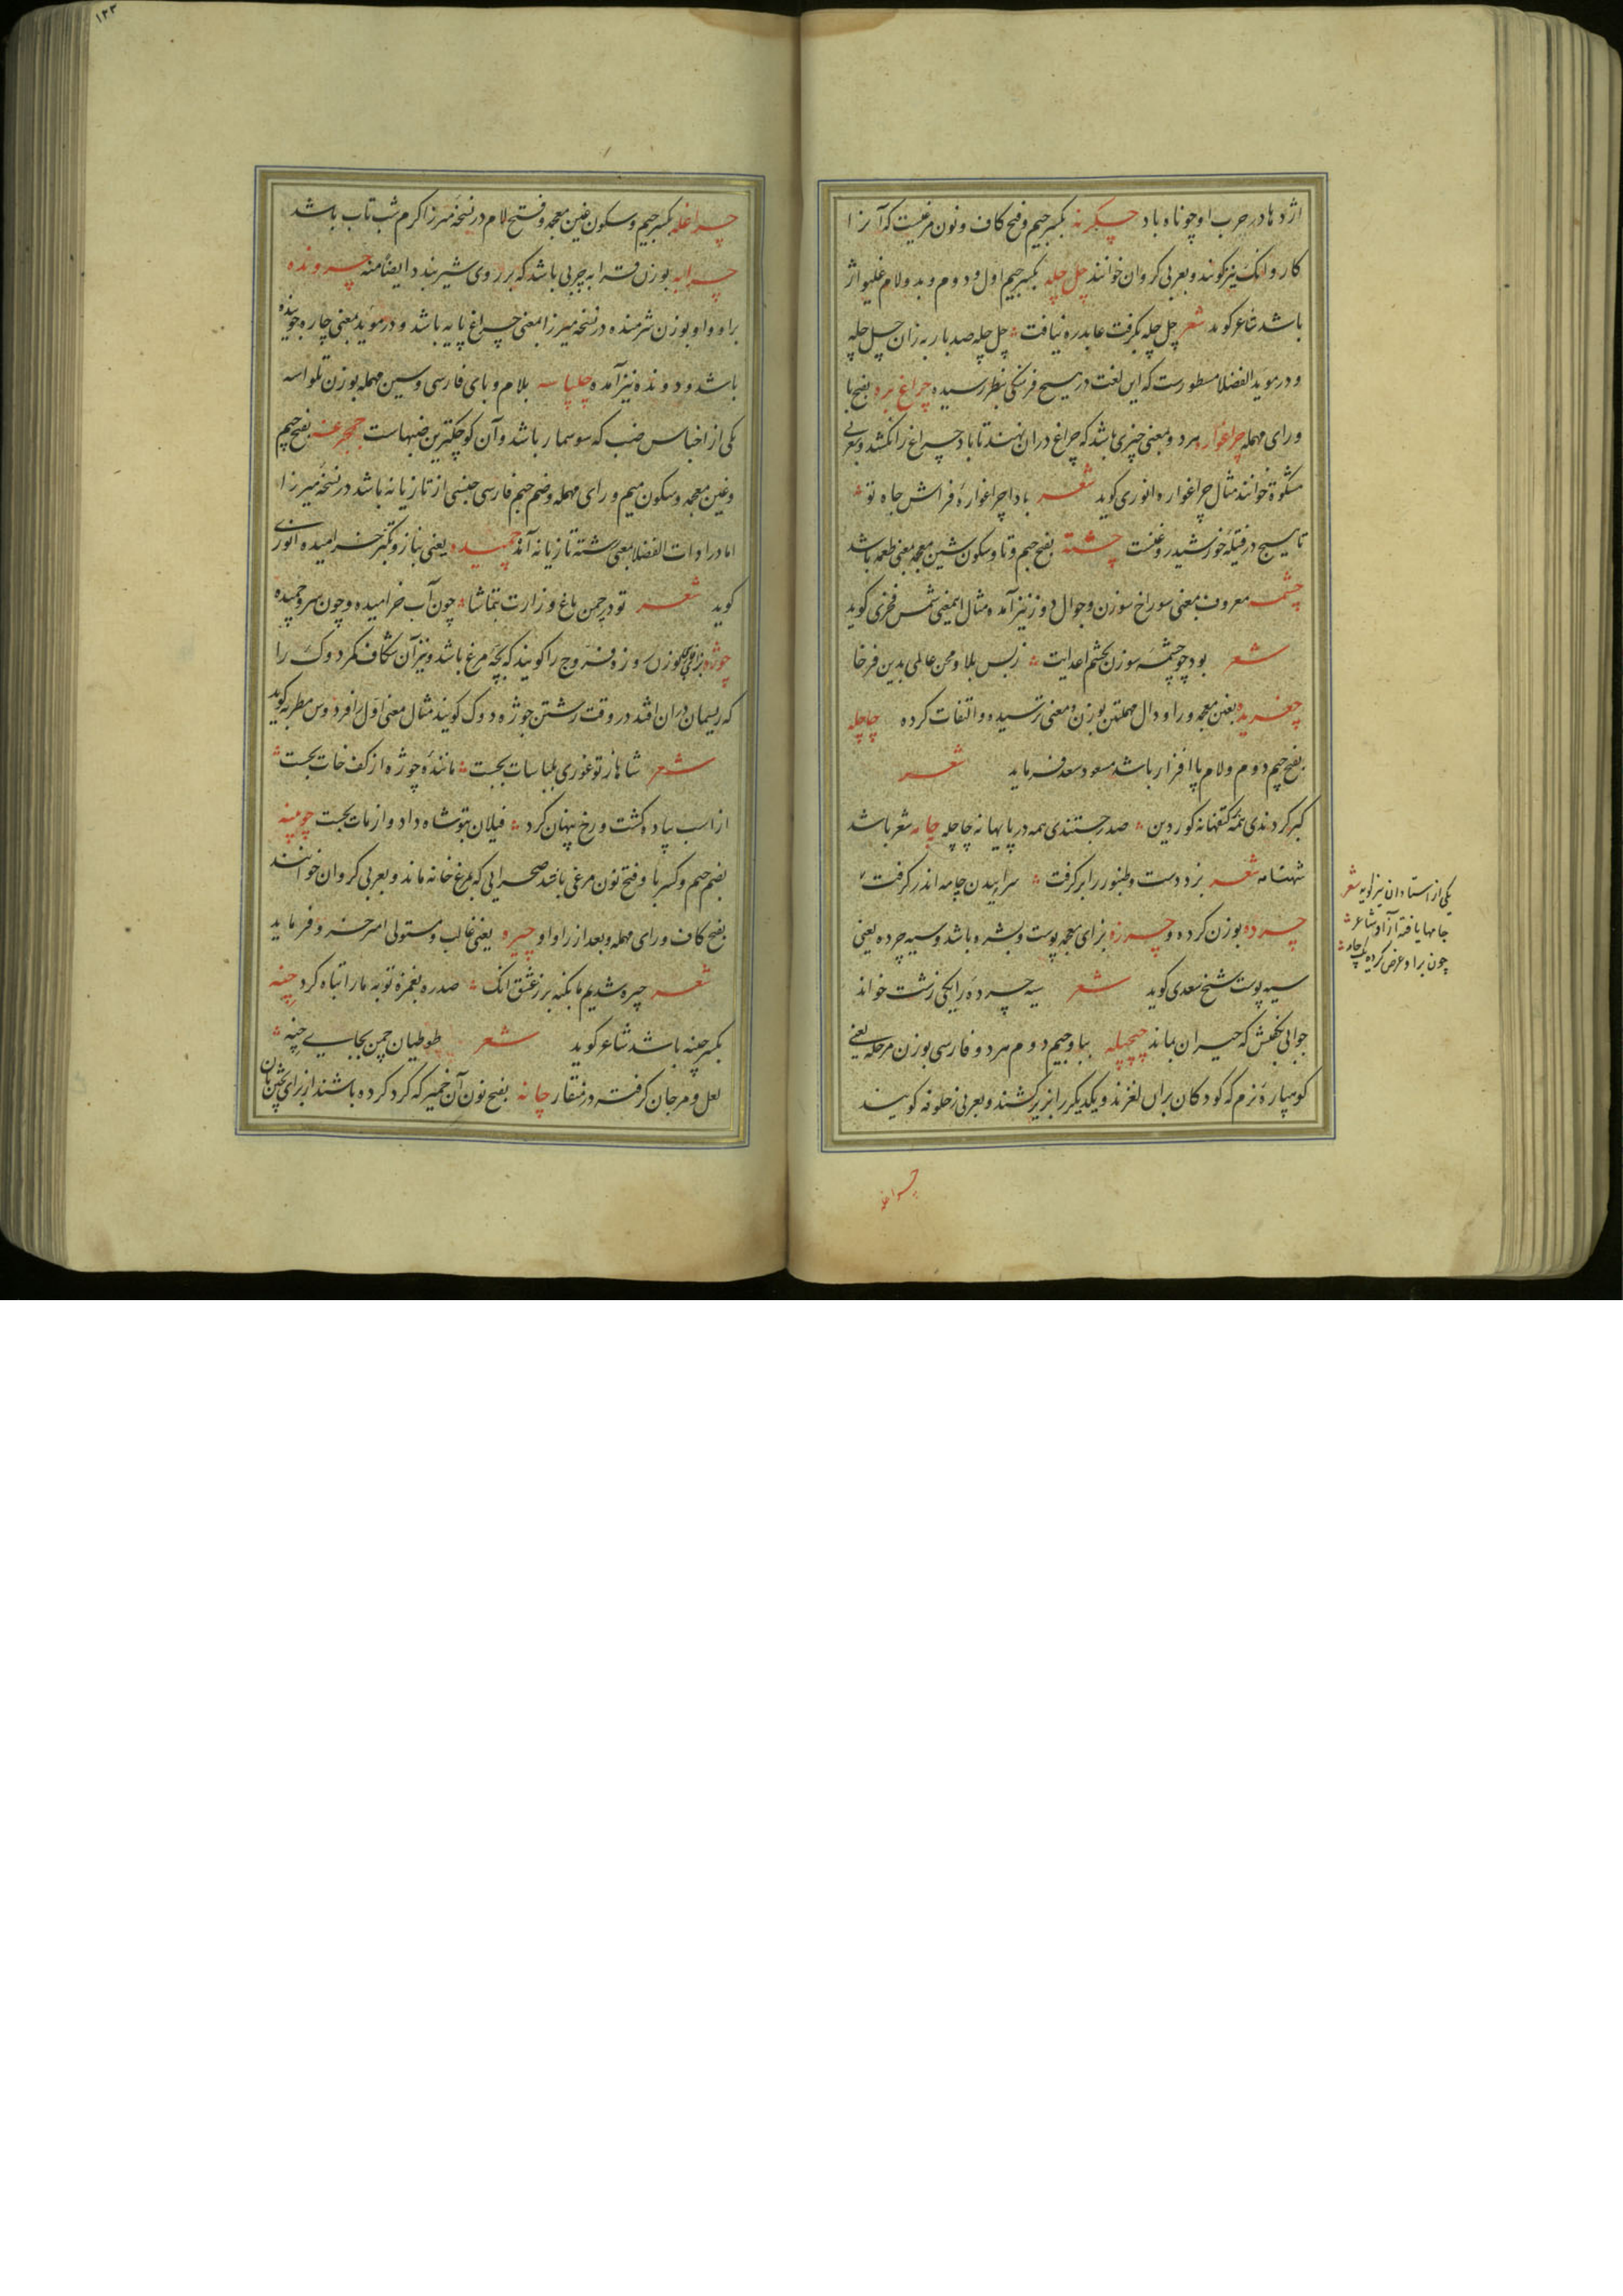 اژدها در حرب او چو ناو باد چکرنه بکسر جیم و فتح کاف و نون مرغیست که آنرا
کاروانک نیز گویند و بعربی کروان خوانند چل چله بکسر جیم اول و دوم و بدو لام غلیواژ
باشد شاعر گوید شعر چل چله بگرفت عابد ره نیافت چل چله صد بار به زان چل چله
و در موید الفضلا مسطورست که این لغت در هیچ فرهنگی بنظر رسیده چراغ بره بفتح با
و رای مهمله چراغواره هر دو بمعنی چیزی باشد که چراغ در ان نهند تا باد چراغ را نکشد و بعربی
مشکوة خوانند مثال چراغواره انوری گوید شعر بادا چراغوارهٔ فراش جاه تو
تا هیچ در فتیله خورشید روغنست چشته بفتح جیم و تا و سکون شین معجمه بمعنی طعمه باشد
چشمه معروف بمعنی سوراخ سوزن و جوال دوز نیز آمده مثال اینمعنی شمس فخری گوید
شعر بود چو چشمه سوزن بچشم اعدایت ز بس بلا و محن عالمی بدین فرخا
چغریده بغین معجمه و را و دال مهملتین بوزن و معنی ترسیده و التفات کرده چاچله
بفتح جیم دوم و لام پا افزار باشد مسعود سعد فرماید شعر
گبر کردندی همه کتفهانه کوردین صدر جستندی همه در پایها نه چاچله چامه شعر باشد
شهنامه شعر بزد دست و طنبور را برگرفت سراییدن چامه اندر گرفت
چرده بوزن کرده و چرزه بزای معجمه پوست و بشره باشد و سیه چرده یعنی
سیه پوست شیخ سعدی گوید شعر سیه چرده را یکی زشت خواند
جوابی بگفتش که حیران بماند چپچله ببا و جیم دوم هر دو فارسی بوزن مرحله یعنی
گو سپاره نرم که کودکان بران لغزند و یکدیگر را بزیر کشند و بعربی زحلوفه گویند
یکی از استادان نیز گوید شعر
جامها یافته آزاد و شاعر
چون برا و عرض کرده یک چامه
چراغله
۱۳۳
چراغله بکسر جیم و سکون غین معجمه و فتح لام در نسخه میرزا کرم شب تاب باشد
چرابه بوزن قرابه چربی باشد که بر روی شیر بندد ایضاً منه چرونده
برا و واو بوزن شرمنده در نسخه میرزا بمعنی چراغ پایه باشد و در موید بمعنی چاره جوینده
باشد و دونده نیز آمده چلپاسه بلام و بای فارسی و سین مهمله بوزن تلواسه
یکی از اجناس ضب که سوسمار باشد و آن کوچکترین ضبهاست چمچرغه بفتح جیم
و غین معجمه و سکون میم و رای مهمله و ضم جیم فارسی جنسی از تازیانه باشد در نسخه میرزا
اما در ادات الفضلا بمعنی رشته تازیانه آمده چمیده یعنی بناز و تکبر خرامیده انوری
گوید شعر تو در چمن باغ وزارت بتماشا چون آب خرامیده و چون سرو چمیده
چوژه بزای عجمی بوزن روزه فروج را گویند که بچهٔ مرغ باشد و نیز آن شکاف گرد دوک را
که ریسمان دران افتد در وقت رشتن چوژه دوک گویند مثال معنی اول را فردوس مطربه گوید
شعر شاها ز تو غوری بلباسات بجست مانندهٔ چوژه از کف خات بجست
از اسب پیاده گشت و رخ پنهان کرد فیلان بتو شاه داد و از مات بجست چوپینه
بضم جیم و کسر با و فتح نون مرغی باشد صحرایی که بمرغ خانه ماند و بعربی کروان خوانند
بفتح کاف و رای مهمله و بعد از را واو چیره یعنی غالب و مستولی امیر خسرو فرماید
شعر چیره شدیم ما بکنه بر ز عشق انک صد ره بغمزه توبه ما را تباه کرد چنه
بکسر چینه باشد شاعر گوید شعر طوطیان چمن بجایی چنه
لعل و مرجان گرفته در منقار چانه بفتح نون آن خمیر که گرد کرده باشند از برای پختن نان